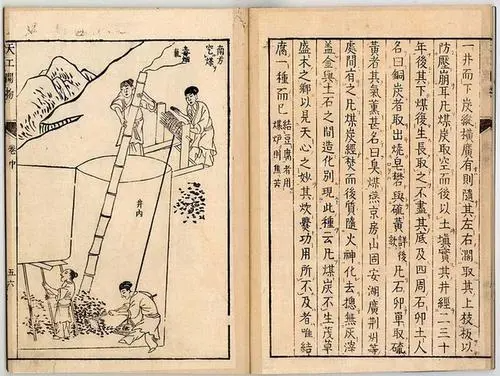 一井而下炭縱橫廣有則隨其左右闊取其上枝板以
防壓崩耳凡煤炭取空而後以土塡實其井經二三十
年後其下煤復生長取之不盡其底及四周石卵土人
名曰銅炭者取出燒皂礬與硫黃詳後款凡石卵單取硫
黃者其氣薰甚名曰臭煤燕京房山固安湖廣荆州等
處間有之凡煤炭經焚而後質隨火神化去總無灰滓
蓋金與土石之間造化別現此種云凡煤炭不生茂草
盛木之鄉以見天心之妙其炊爨功用所不及者唯結
腐一種而已結豆腐者用煤爐則焦苦
南方
煤
井內
天工開物
卷中
五六